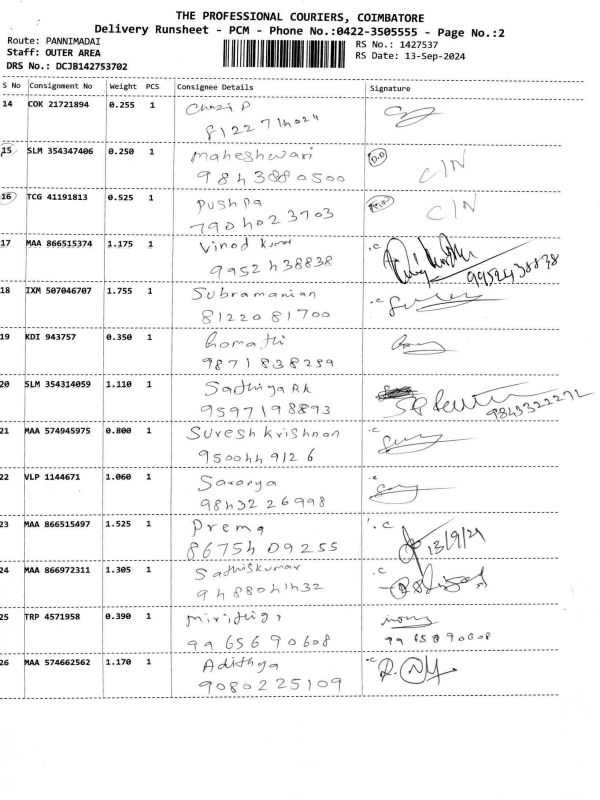 THE PROFESSIONAL COURIERS, COIMBATORE
Delivery Runsheet - PCM - Phone No.:0422-3505555 - Page No.:2
Route: PANNIMADAI
Staff: OUTER AREA
DRS No.: DCJB142753702
RS No.: 1427537
RS Date: 13-Sep-2024
S No Consignment No Weight PCS Consignee Details Signature
14 COK 21721894 0.255 1
15 SLM 354347406 0.250 1 Maheshwari D.D C/N
9843880500
16 TCG 41191813 0.525 1 Pushpa C/N
7904023703
17 MAA 866515374 1.175 1 Vinod Kumar .C
9952438838 9952438838
18 IXM 507046707 1.755 1 Subramanian .C
8122081700
19 KDI 943757 0.350 1 Gomathi
9871838259
20 SLM 354314059 1.110 1 Sadhiya RK
9597198893 9843322272
21 MAA 574945975 0.800 1 Suresh Krishnan .C
9500449126
22 VLP 1144671 1.060 1 Saranya .C
9843226998
23 MAA 866515497 1.525 1 Prema .C
8675409255 13/9/24
24 MAA 866972311 1.305 1 Sadhiskumar .C
9488041432
25 TRP 4571958 0.390 1
9965690608 9965890608
26 MAA 574662562 1.170 1 Adithya .C
9080225109